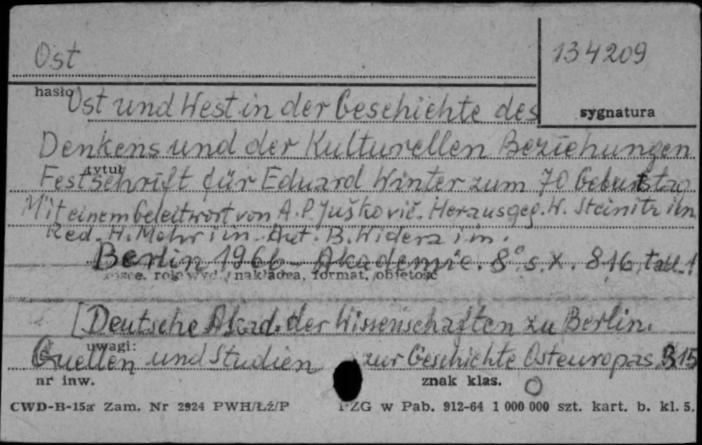 Ost
134209
hasło
sygnatura
Ost und West in der Geschichte des
Denkens und der Kulturellen Beziehungen
tytuł
Festschrift für Eduard Winter zum 70 Geburtstag
Mit einem Geleitwort von A.P. Juškovič. Herausgeg. W. Steinitz i in.
Red. H. Mohr i in. Aut. B. Widera i in.
Berlin 1966 - Akademie. 8° s. X. 816, tabl. 1
miejsce, rok wyd., nakładca, format, objętość
[Deutsche Akad. der Wissenschaften zu Berlin.
uwagi:
Quellen und Studien zur Geschichte Osteuropas. B 15
nr inw.
znak klas.
CWD-B-15a Zam. Nr 2924 PWH/Łź/P PZG w Pab. 912-64 1 000 000 szt. kart. b. kl. 5.